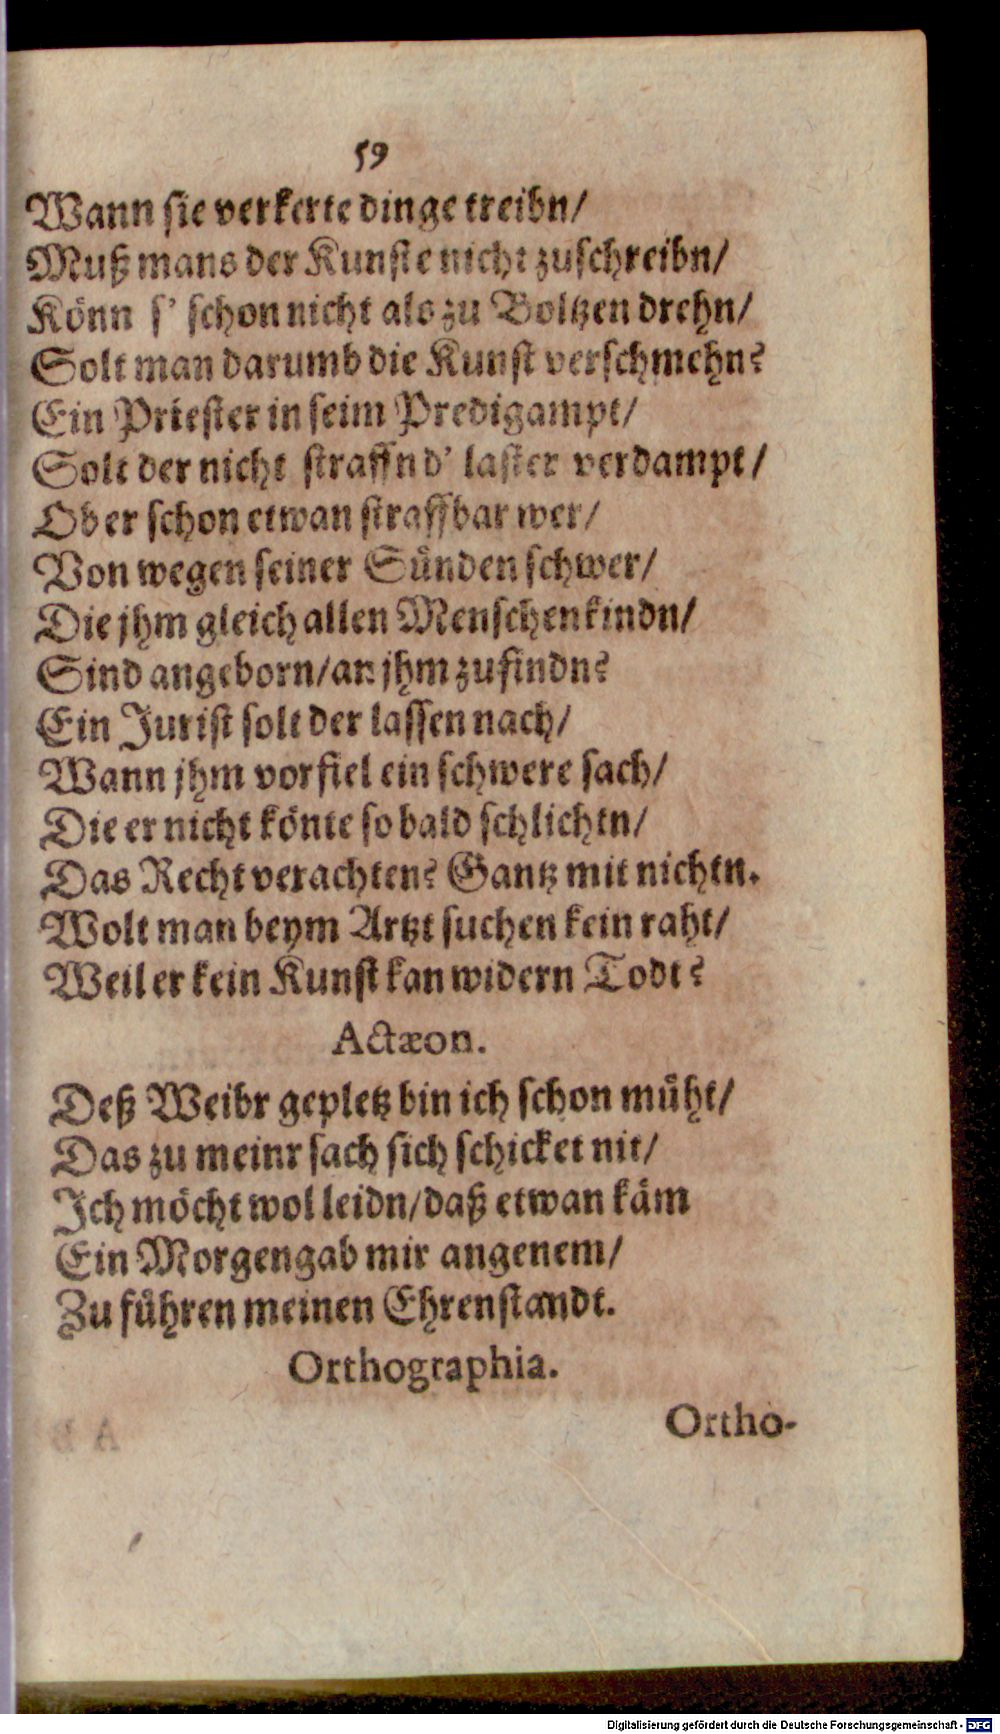 59
Wann sie verkerte dinge treibn/
Muß mans der Kunste nicht zuschreibn/
Könn s' schon nicht als zu Boltzen drehn/
Solt man darumb die Kunst verschmehn?
Ein Priester in seim Predigampt/
Solt der nicht straffn d' laster verdampt/
Ob er schon etwan straffbar wer/
Von wegen seiner Sünden schwer/
Die jhm gleich allen Menschenkindn/
Sind angeborn/an jhm zufindn?
Ein Jurist solt der lassen nach/
Wann jhm vorfiel ein schwere sach/
Die er nicht könte so bald schlichtn/
Das Recht verachten? Gantz mit nichtn.
Wolt man beym Artzt suchen kein raht/
Weil er kein Kunst kan widern Todt?
Actæon.
Deß Weibr gepletz bin ich schon müht/
Das zu meinr sach sich schicket nit/
Ich möcht wol leidn/daß etwan käm
Ein Morgengab mir angenem/
Zu führen meinen Ehrenstandt.
Orthographia.
Ortho-
Digitalisierung gefördert durch die Deutsche Forschungsgemeinschaft - DFG